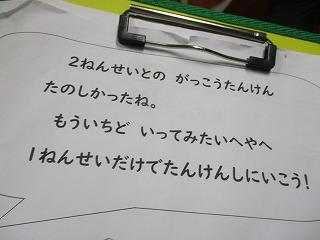 2ねんせいとの がっこうたんけん
たのしかったね。
もういちど いってみたいへやへ
1ねんせいだけでたんけんしにいこう!